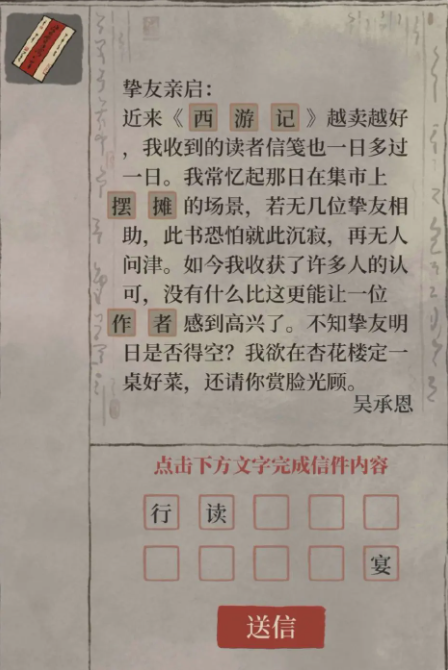 挚友亲启：
近来《西游记》越卖越好
，我收到的读者信笺也一日多过
一日。我常忆起那日在集市上
摆摊的场景，若无几位挚友相
助，此书恐怕就此沉寂，再无人
问津。如今我收获了许多人的认
可，没有什么比这更能让一位
作者感到高兴了。不知挚友明
日是否得空？我欲在杏花楼定一
桌好菜，还请你赏脸光顾。
吴承恩
点击下方文字完成信件内容
行 读
宴
送信